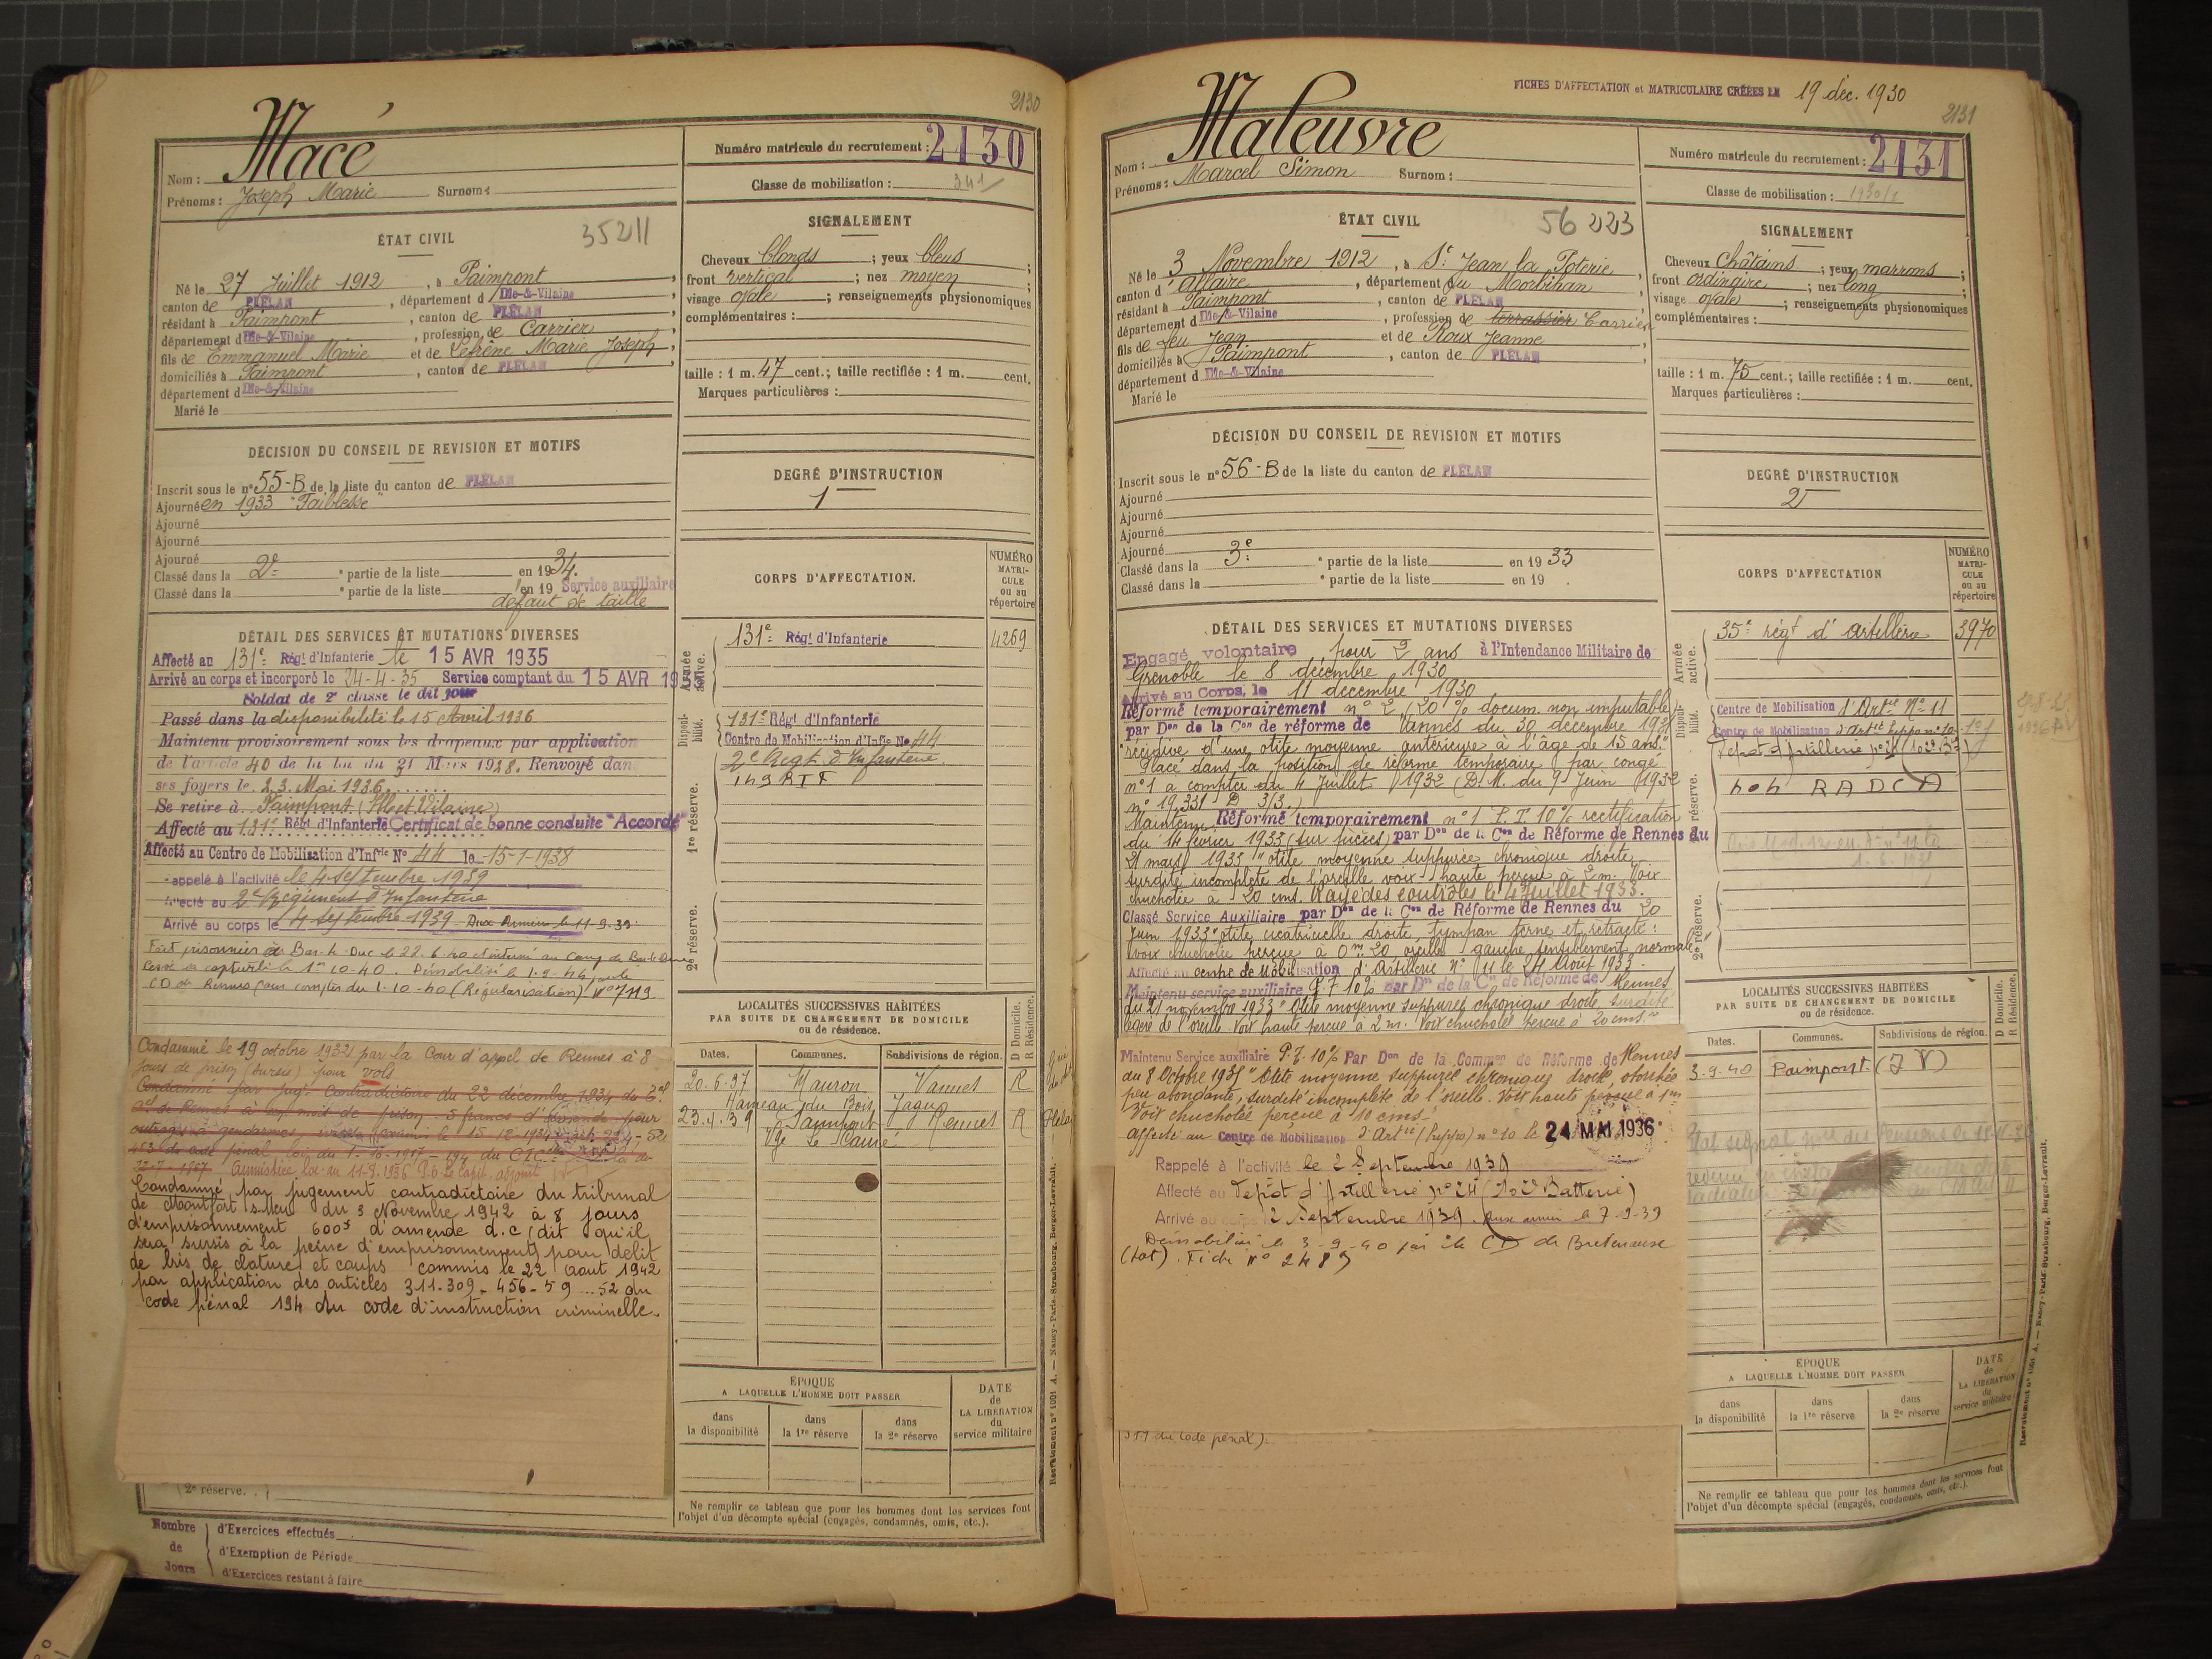 2130
Macé
Nom :
Prénoms : Joseph Marie Surnom :
Numéro matricule du recrutement : 2130
Classe de mobilisation : 341
ÉTAT CIVIL
35211
Né le 27 Juillet 1912, à Paimpont,
canton de PLÉLAN, département d Ille-&-Vilaine
résidant à Paimpont, canton de PLÉLAN,
département d Ille-&-Vilaine, profession de Carrier
fils de Emmanuel Marie et de Lefrène Marie Joseph,
domiciliés à Paimpont, canton de PLÉLAN,
département d Ille-&-Vilaine
Marié le
SIGNALEMENT
Cheveux blonds ; yeux bleus ;
front vertical ; nez moyen ;
visage ovale ; renseignements physionomiques
complémentaires :
taille : 1 m. 47 cent. ; taille rectifiée : 1 m. cent.
Marques particulières :
DÉCISION DU CONSEIL DE REVISION ET MOTIFS
Inscrit sous le n° 55-B de la liste du canton de PLÉLAN
Ajourné en 1933 "Faiblesse"
Ajourné
Ajourné
Ajourné
Classé dans la 2e partie de la liste en 1934.
Classé dans la e partie de la liste en 19 Service auxiliaire
défaut de taille
DEGRÉ D'INSTRUCTION
1
CORPS D'AFFECTATION.
NUMÉRO MATRICULE ou au répertoire
Armée active.
131e Régt d'Infanterie 4269
Disponibilité.
131e Régt d'Infanterie
Centre de Mobilisation d'Infie No 44
2e Regt d'Infanterie
1re réserve.
2e réserve.
DÉTAIL DES SERVICES ET MUTATIONS DIVERSES
Affecté au 131e Régt d'Infanterie le 15 AVR 1935
Arrivé au corps et incorporé le 24-4-35 Service comptant du 15 AVR 1935
Soldat de 2e classe le dit jour
Passé dans la disponibilité le 15 Avril 1936
Maintenu provisoirement sous les drapeaux par application
de l'article 40 de la loi du 31 Mars 1928. Renvoyé dans
ses foyers le 23 Mai 1936
Se retire à Paimpont (Ille et Vilaine)
Affecté au 131e Régt d'Infanterie Certificat de bonne conduite "Accordé"
Affecté au Centre de Mobilisation d'Infie No 44 le 15-1-1938
Rappelé à l'activité le 4 septembre 1939
Affecté au 2e Régiment d'Infanterie
Arrivé au corps le 4 septembre 1939 Aux Armées le 11-9-39
Fait prisonnier à Bar-le-Duc le 22.6.40 et interné au Camp de Bar-le-Duc
1er 10-40. Démobilisé le
CD de Rennes pour compter du 1-10-40 (Régularisation) No 7119
Condamné le 19 octobre 1932 par la Cour d'appel de Rennes à 8
jours de prison (sursis) pour vols
Condamné par jugt Contradictoire du 22 décembre 1934 du
de Rennes à un mois de prison, 5 francs d'amende pour
outrages à gendarmes
code pénal loi du
Amnistiée loi du 11-8-1936
Condamné par jugement contradictoire du tribunal
de Montfort s-Meu du 3 Novembre 1942 à 8 jours
d'emprisonnement 600f d'amende d.c (dit qu'il
sera sursis à la peine d'emprisonnement) pour délit
de bris de cloture et coups commis le 22 aout 1942
par application des articles 311-309-456-59...52 du
code pénal 194 du code d'instruction criminelle.
2e réserve.
Nombre de Jours
d'Exercices effectués
d'Exemption de Période
d'Exercices restant à faire
LOCALITÉS SUCCESSIVES HABITÉES
PAR SUITE DE CHANGEMENT DE DOMICILE
ou de résidence.
D Domicile. R Résidence.
Dates. Communes. Subdivisions de région.
20.6.37 Mauron Vannes R
Hameau du Bois Jagu
23.4.39 Paimpont Rennes R
Vge Le Canée
ÉPOQUE
A LAQUELLE L'HOMME DOIT PASSER
DATE de LA LIBÉRATION du service militaire
dans la disponibilité
dans la 1re réserve
dans la 2e réserve
Ne remplir ce tableau que pour les hommes dont les services font
l'objet d'un décompte spécial (engagés, condamnés, omis, etc.).
Recrutement n° 1001 A. — Nancy-Paris-Strasbourg, Berger-Levrault.
FICHES D'AFFECTATION et MATRICULAIRE CRÉÉES LE 19 déc. 1930
2131
Maleuvre
Nom :
Prénoms : Marcel Simon Surnom :
Numéro matricule du recrutement : 2131
Classe de mobilisation : 1930/2
ÉTAT CIVIL
56 223
Né le 3 Novembre 1912, à St Jean la Poterie,
canton d'Allaire, département du Morbihan,
résidant à Paimpont, canton de PLÉLAN
département d Ille-&-Vilaine, profession de terrassier Carrier
fils de feu Jean et de Roux Jeanne,
domiciliés à Paimpont, canton de PLÉLAN
département d Ille-&-Vilaine
Marié le
SIGNALEMENT
Cheveux châtains ; yeux marrons ;
front ordinaire ; nez long ;
visage ovale ; renseignements physionomiques
complémentaires :
taille : 1 m. 75 cent. ; taille rectifiée : 1 m. cent.
Marques particulières :
DÉCISION DU CONSEIL DE REVISION ET MOTIFS
Inscrit sous le n° 56-B de la liste du canton de PLÉLAN
Ajourné
Ajourné
Ajourné
Ajourné
Classé dans la 3e partie de la liste en 1933
Classé dans la e partie de la liste en 19 .
DEGRÉ D'INSTRUCTION
2
CORPS D'AFFECTATION
NUMÉRO MATRICULE ou au répertoire
Armée active.
35e régt d'Artillerie 3970
Disponibilité.
Centre de Mobilisation d'Artie No 11
Centre de Mobilisation d'Artie hippo no 10
Dépot d'Artillerie no 24
1re réserve.
404 RADCA
2e réserve.
DÉTAIL DES SERVICES ET MUTATIONS DIVERSES
Engagé volontaire pour 2 ans à l'Intendance Militaire de
Grenoble le 8 décembre 1930
Arrivé au Corps, le 11 décembre 1930
Réformé temporairement n° 2 (20% docum. non imputable)
par Don de la Con de réforme de Vannes du 30 décembre 1931
"récidive d'une otite moyenne antérieure à l'âge de 15 ans."
Placé dans la position de réforme temporaire par congé
n°1 à compter du 4 Juillet 1932 (D.M. du 9 Juin 1932
n° 19.331 D 3/3.)
Maintenu Réformé temporairement n°1 P.T. 10% rectification
du 14 février 1933 (sur pièces) par Don de la Con de Réforme de Rennes du
21 mars 1933 "otite moyenne suppurée chronique droite
surdité incomplète de l'oreille voix haute perçue à 2 m. Voix
chuchotée à 20 cms. Rayé des contrôles le 4 Juillet 1933.
Classé Service Auxiliaire par Don de la Con de Réforme de Rennes du 20
Juin 1933 "otite cicatricielle droite, tympan terne et rétracté :
Voix chuchotée perçue à 0m20 oreille gauche sensiblement normale"
Affecté au centre de Mobilisation d'Artillerie No 11 le 24 Août 1933
Maintenu service auxiliaire P.T 10% par Don de la Con de Réforme de Rennes
du 21 novembre 1933 "Otite moyenne suppurée chronique droite, surdité
légère de l'oreille. Voix haute perçue à 2 m. Voix chuchotée perçue à 20 cms."
Maintenu Service auxiliaire P.T. 10% Par Don de la Common de Réforme de Rennes
du 8 Octobre 1935 "Otite moyenne suppurée chronique droite, otorrhée
peu abondante, surdité incomplète de l'oreille. Voix haute perçue à 1m
Voix chuchotée perçue à 10 cms."
affecté au Centre de Mobilisation d'Artie (hippo) n°10 le 24 MAI 1936
Rappelé à l'activité le 2 Septembre 1939
Affecté au Dépot d'Artillerie no 24 (102e Batterie)
Arrivé au corps 2 Septembre 1939. Aux armées le 7-9-39
Démobilisé le 3-9-40 par le CD de Bretenoux
(Lot). Fiche No 2485
319 du code pénal).
LOCALITÉS SUCCESSIVES HABITÉES
PAR SUITE DE CHANGEMENT DE DOMICILE
ou de résidence.
D Domicile. R Résidence.
Dates. Communes. Subdivisions de région.
3-9-40 Paimpont (I V)
ÉPOQUE
A LAQUELLE L'HOMME DOIT PASSER
DATE de LA LIBÉRATION du service militaire
dans la disponibilité
dans la 1re réserve
dans la 2e réserve
Ne remplir ce tableau que pour les hommes dont les services font
l'objet d'un décompte spécial (engagés, condamnés, omis, etc.).
Recrutement n° 1001 A. — Nancy-Paris-Strasbourg, Berger-Levrault.